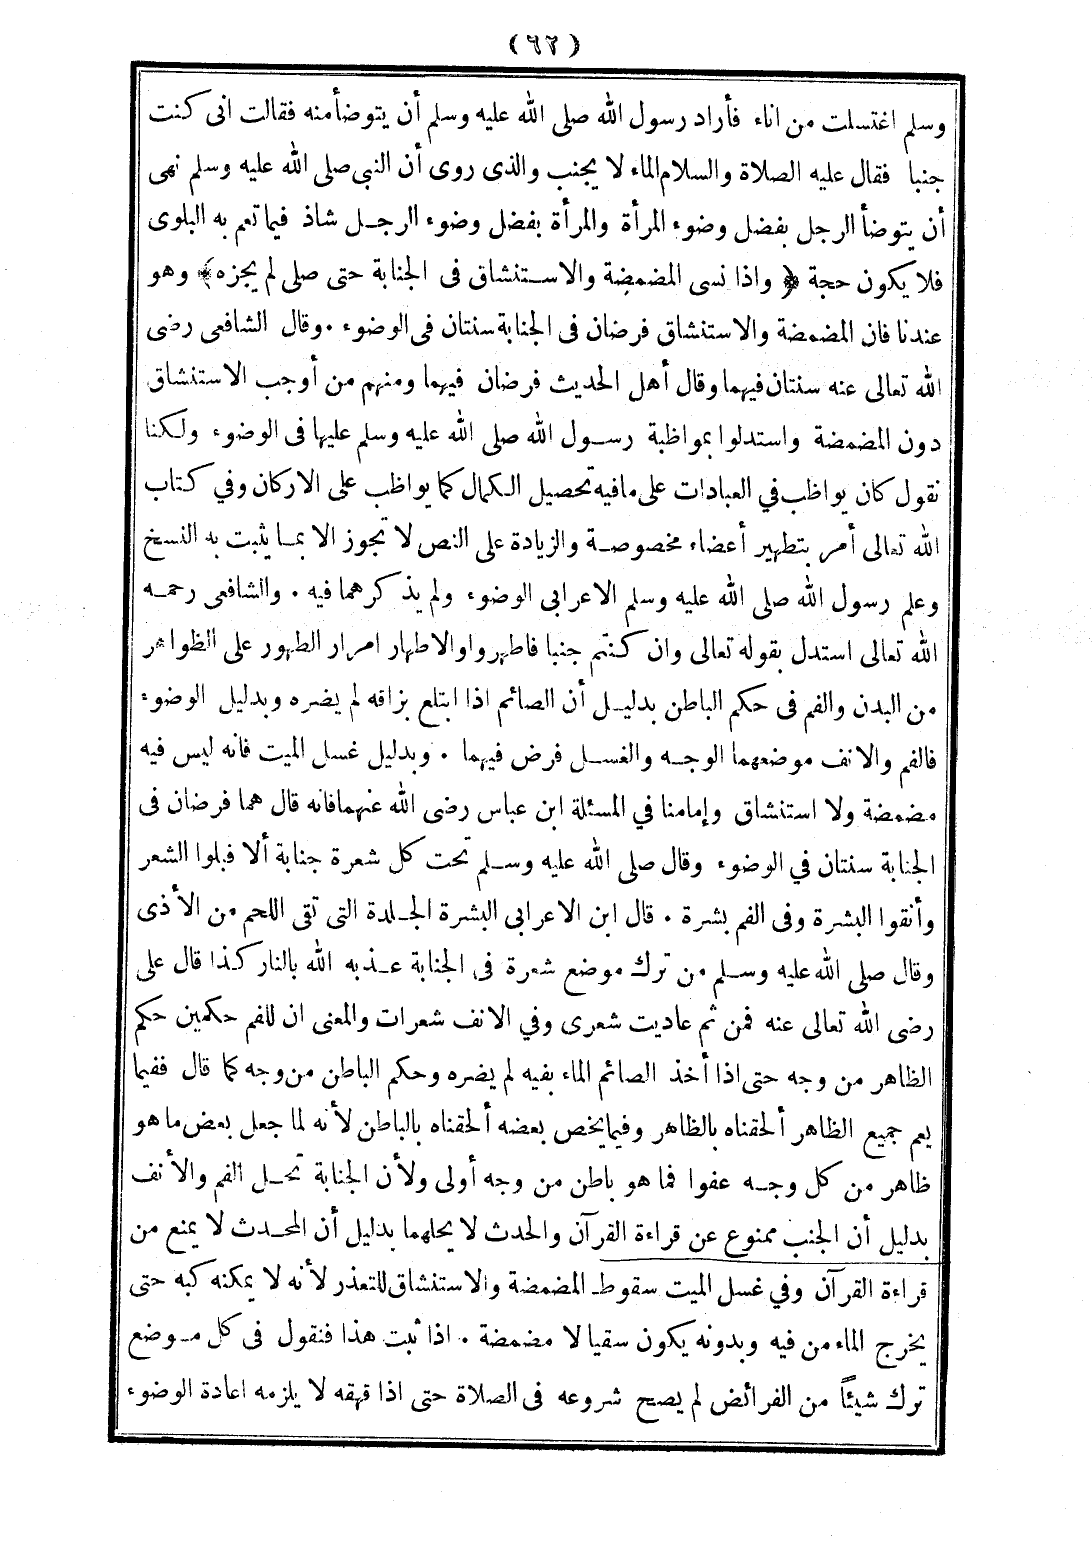 (٦٢)
وسلم اغتسلت من اناء فأراد رسول الله صلى الله عليه وسلم أن يتوضأ منه فقالت انى كنت
جنبا فقال عليه الصلاة والسلام الماء لا يجنب والذى روى أن النبي صلى الله عليه وسلم نهى
أن يتوضأ الرجل بفضل وضوء المرأة والمرأة بفضل وضوء الرجل شاذ فيما تعم به البلوى
فلا يكون حجة ﴿ واذا نسى المضمضة والاستنشاق فى الجنابة حتى صلى لم يجزه﴾ وهو
عندنا فان المضمضة والاستنشاق فرضان فى الجنابة سنتان فى الوضوء . وقال الشافعى رضى
الله تعالى عنه سنتان فيهما وقال أهل الحديث فرضان فيهما ومنهم من أوجب الاستنشاق
دون المضمضة واستدلوا بمواظبة رسول الله صلى الله عليه وسلم عليها فى الوضوء ولكنا
نقول كان يواظب في العبادات على مافيه تحصيل الكمال كما يواظب على الاركان وفي كتاب
الله تعالى أمر بتطهير أعضاء مخصوصة والزيادة على النص لا تجوز الا بما يثبت به النسخ
وعلم رسول الله صلى الله عليه وسلم الاعرابى الوضوء ولم يذكرهما فيه . والشافعى رحمه
الله تعالى استدل بقوله تعالى وان كنتم جنبا فاطهروا والاطهار امرار الطهور على الظواهر
من البدن والفم فى حكم الباطن بدليل أن الصائم اذا ابتلع بزاقه لم يضره وبدليل الوضوء
فالفم والانف موضعهما الوجه والغسل فرض فيهما . وبدليل غسل الميت فانه ليس فيه
مضمضة ولا استنشاق وإمامنا في المسئلة ابن عباس رضى الله عنهما فانه قال هما فرضان فى
الجنابة سنتان في الوضوء وقال صلى الله عليه وسلم تحت كل شعرة جنابة ألا فبلوا الشعر
وأنقوا البشرة وفى الفم بشرة . قال ابن الاعرابى البشرة الجلدة التى تقى اللحم من الأذى
وقال صلى الله عليه وسلم من ترك موضع شعرة فى الجنابة عذبه الله بالنار كذا قال على
رضى الله تعالى عنه فمن ثم عاديت شعرى وفي الانف شعرات والمعنى ان للفم حكمين حكم
الظاهر من وجه حتى اذا أخذ الصائم الماء بفيه لم يضره وحكم الباطن من وجه كما قال ففيما
يعم جميع الظاهر ألحقناه بالظاهر وفيما يخص بعضه ألحقناه بالباطن لأنه لما جعل بعض ما هو
ظاهر من كل وجه عفوا فما هو باطن من وجه أولى ولأن الجنابة تحل الفم والأنف
بدليل أن الجنب ممنوع عن قراءة القرآن والحدث لا يحلهما بدليل أن المحدث لا يمنع من
قراءة القرآن وفي غسل الميت سقوط المضمضة والاستنشاق للتعذر لأنه لا يمكنه كبه حتى
يخرج الماء من فيه وبدونه يكون سقيا لا مضمضة . اذا ثبت هذا فنقول فى كل موضع
ترك شيئاً من الفرائض لم يصح شروعه فى الصلاة حتى اذا قهقه لا يلزمه اعادة الوضوء